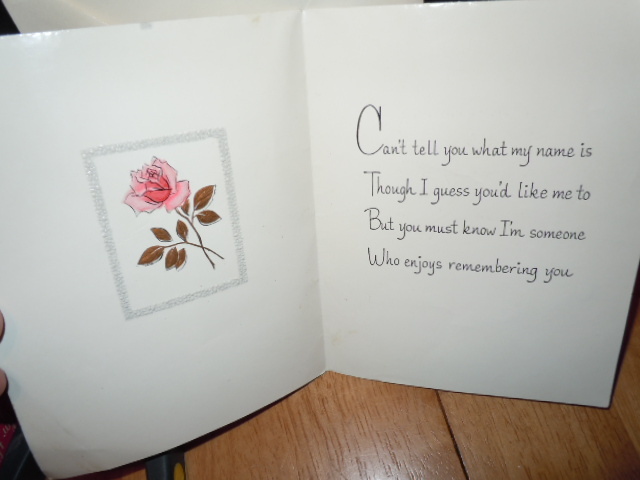 Can't tell you what my name is
Though I guess you'd like me to
But you must know I'm someone
Who enjoys remembering you